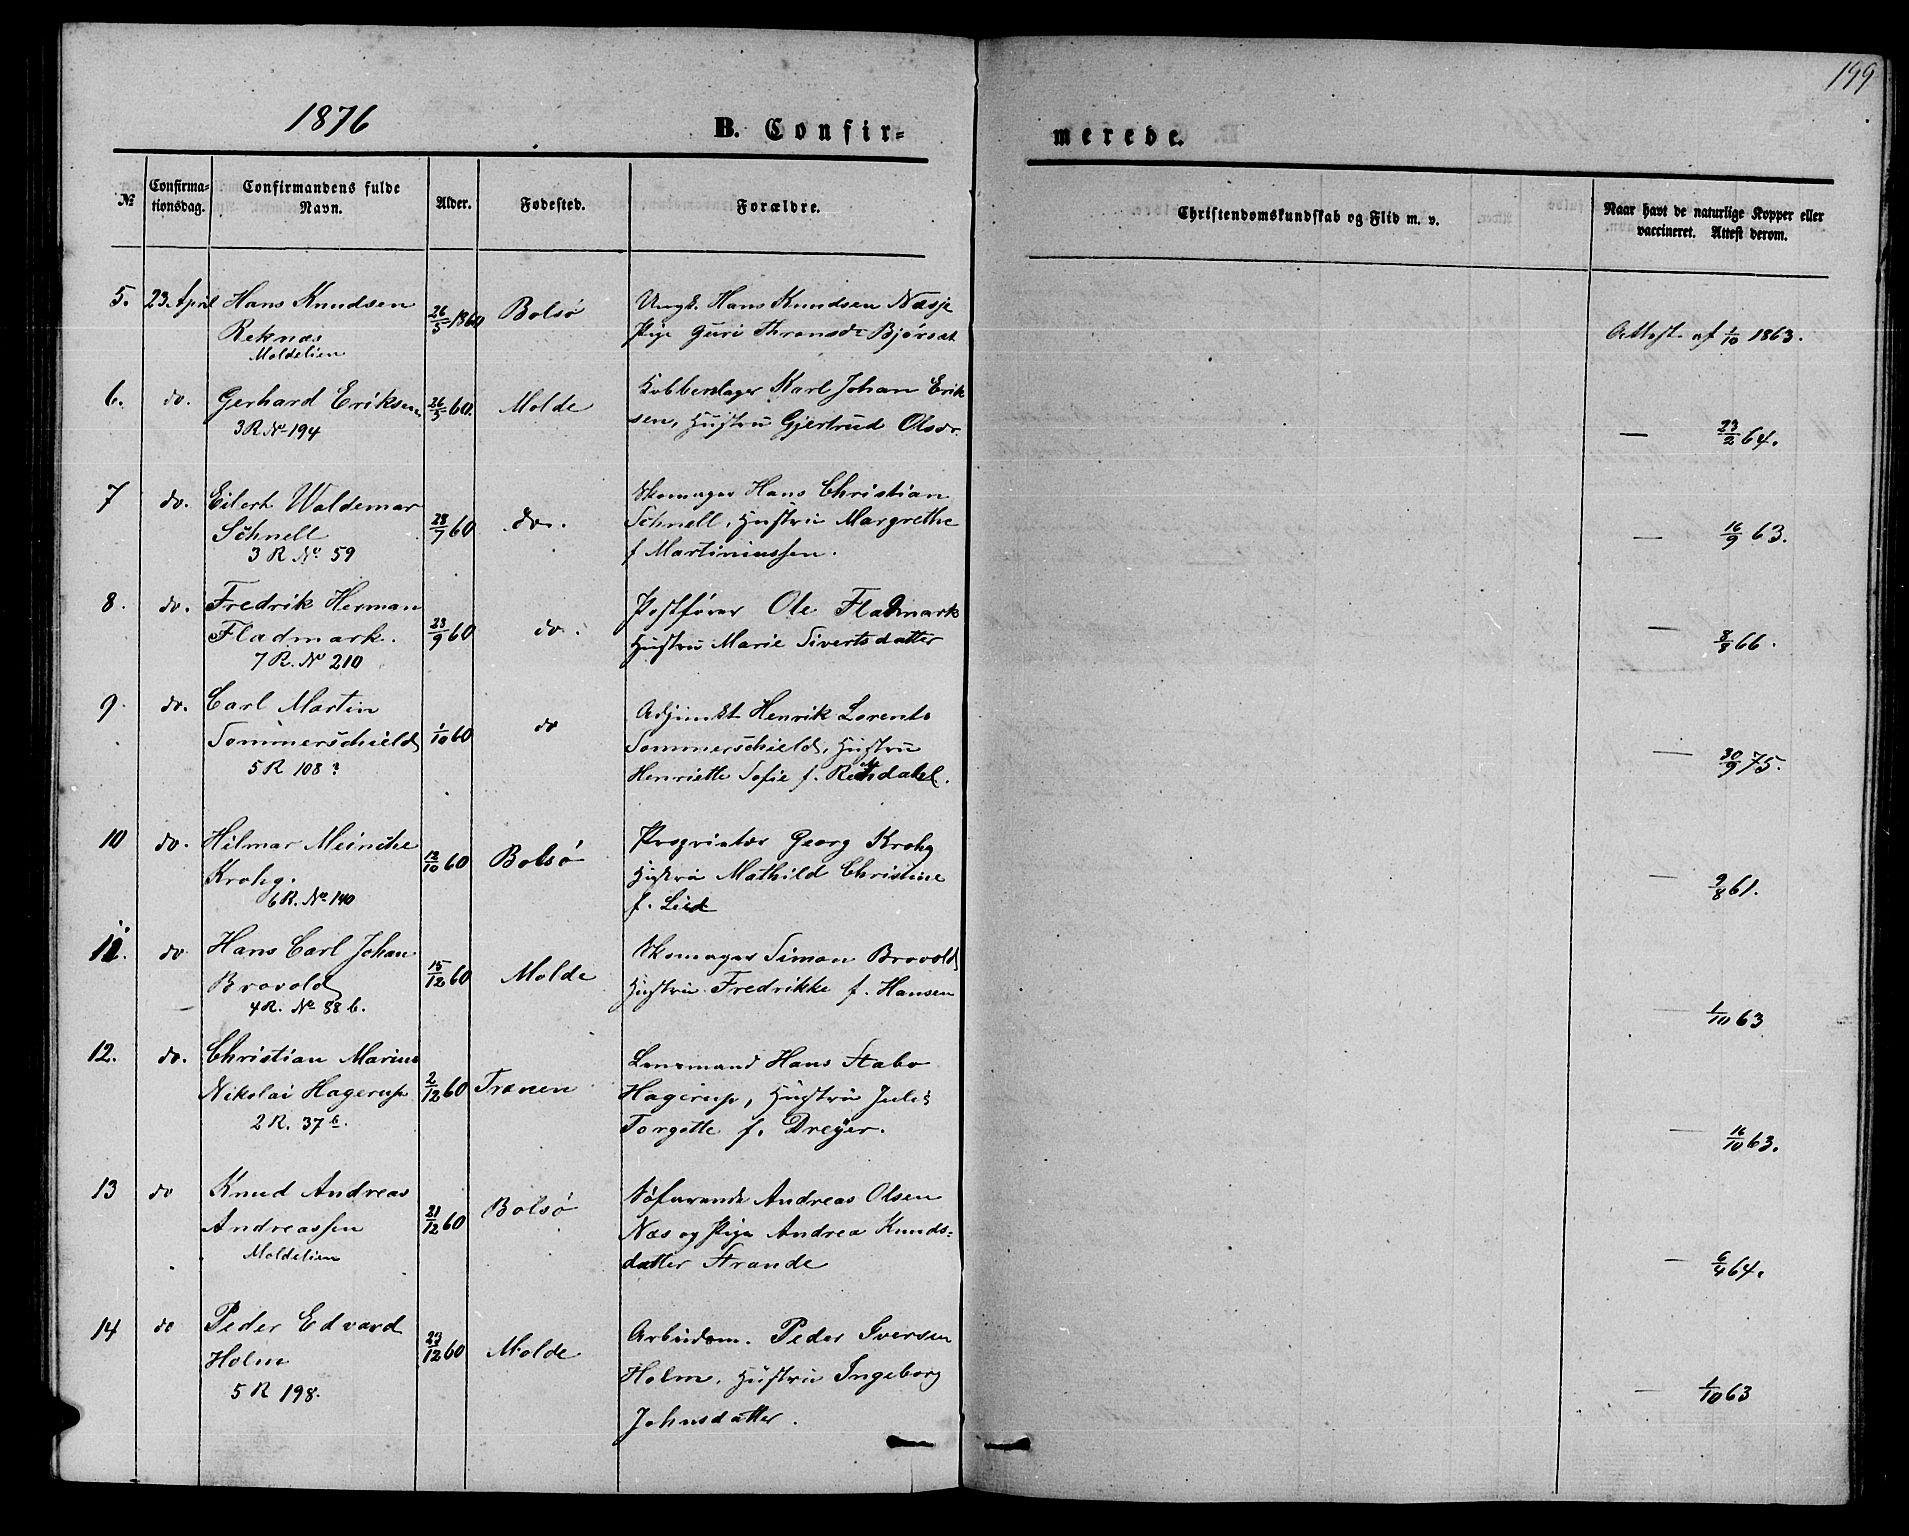 199
1876
B. Confir-
merede.
№
Confirma-
tionsdag.
Confirmandens fulde
Navn.
Alder.
Fødested.
Forældre.
Christendomskundskab og Flid m. v.
Naar havt de naturlige Kopper eller
vaccineret. Attest derom.
5. 23 April Hans Knudsen 26/5 1860 Bolsø Ungk. Hans Knudsen Næsje
Reknæs Pige Guri Thronsdr Bjørset
Moldelien
Attest af 1/10 1863.
6. do. Gerhard Eriksen 26/5 60. Molde Kobberslager Karl Johan Erik
3 R No 194 sen, Hustru Gjertrud Olsdr.
— 23/2 64.
7 do. Eilert Waldemar 28/7 60 do. Skomager Hans Christian
Schnell Schnell, Hustru Margrethe
3 R. No 59 f Martiniussen.
— 16/9 63.
8. do. Fredrik Herman 23/9 60 do. Postfører Ole Fladmark
Fladmark. Hustru Marie Sivertsdatter
7 R. No 210
— 8/8 66.
9. do. Carl Martin 1/10 60 do Adjunkt Henrik Lorents
Sommerschield Sommerschield, Hustru
5 R 108 Henriette Sofie f.
— 30/9 75.
10 do. Hilmar Meinche 12/10 60 Bolsø Proprietær Georg Krohg
Krohg. Hustru Mathild Christine
6 R. No 140 f.
— 9/8 61.
11. do Hans Carl Johan 15/12 60 Molde Skomager Simon Brovold
Brovold Hustru Fredrikke f. Hansen
4 R. No 88 b.
— 1/10 63
12. do. Christian Marius 2/12 60 Trænen Lensmand Hans Stabo
Nikolai Hagerup Hagerup, Hustru Juli
2 R. 37 b. Torgette f. Dreyer.
— 16/10 63.
13 do Knud Andreas 21/12 60 Bolsø Søfarende Andreas Olsen
Andreassen Næs og Pige Andrea Knuds-
Moldelien datter Strande
— 6/4 64.
14 do Peder Edvard 23/12 60 Molde Arbeidsm. Peder Iversen
Holm Holm, Hustru Ingeborg
5 R 198. Johnsdatter.
— 1/10 63